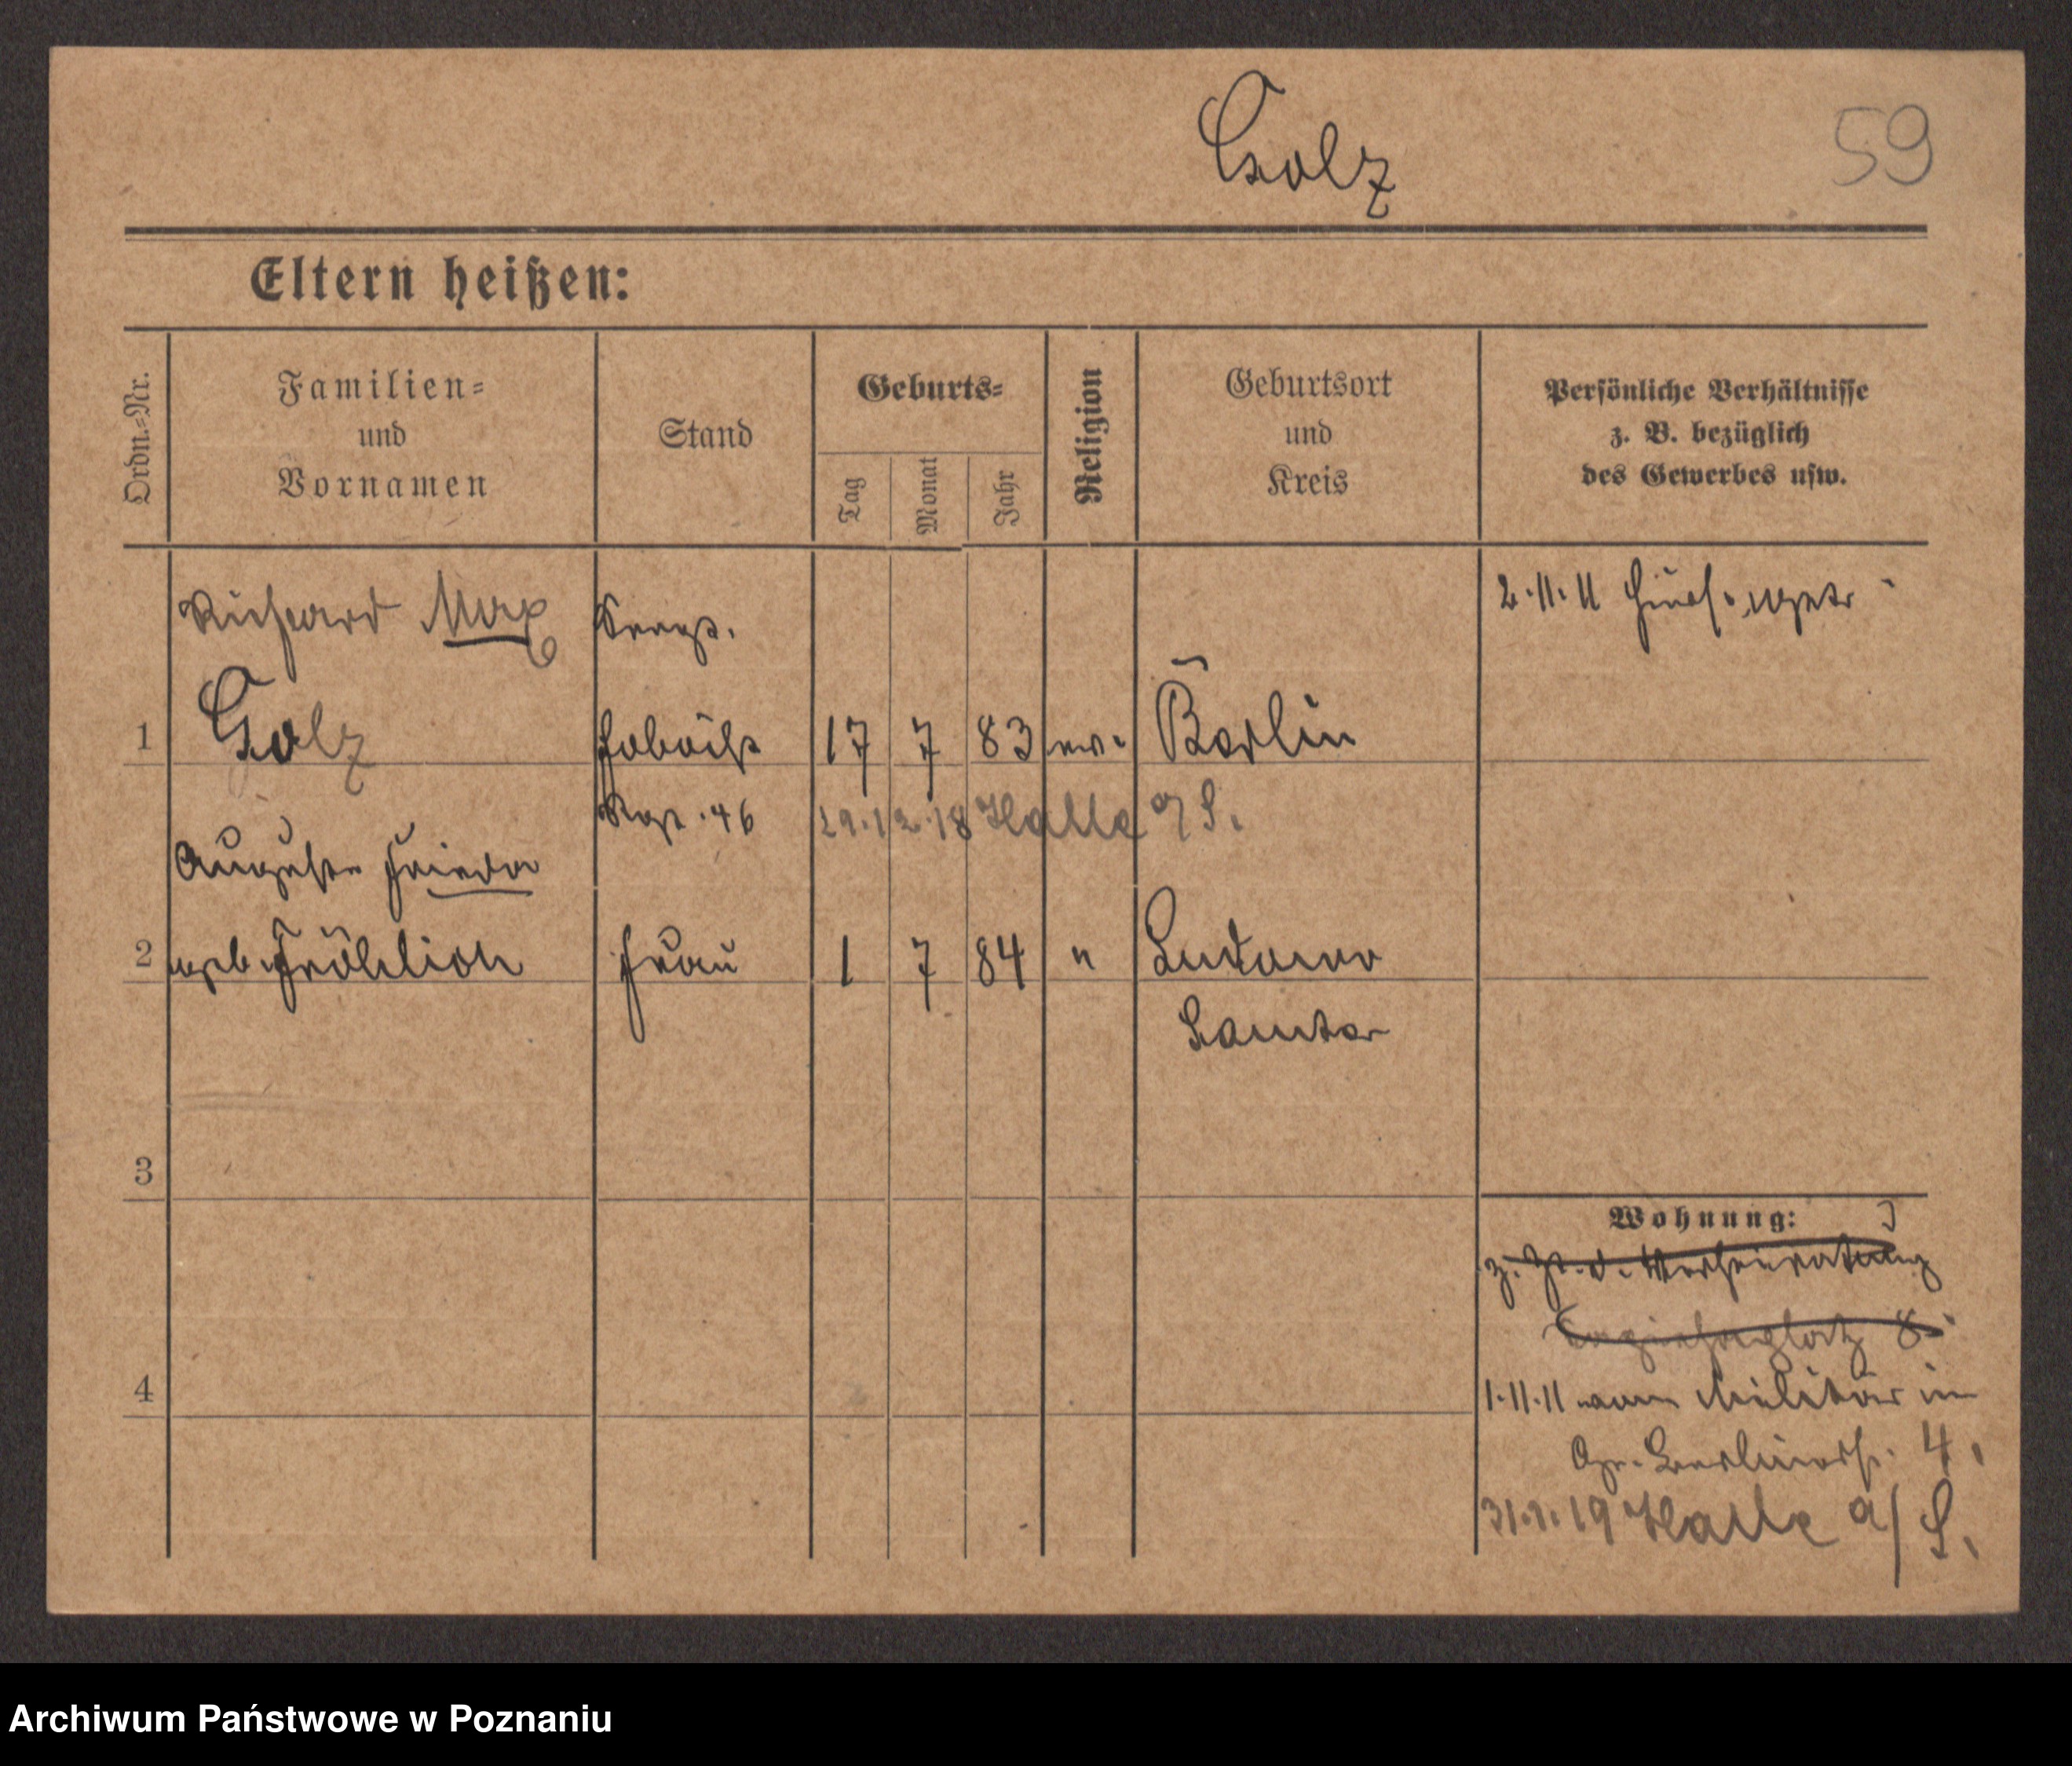 Golz
59
Eltern heißen:
Ordn.=Nr.
Familien=
und
Vornamen
Stand
Geburts=
Tag
Monat
Jahr
Religion
Geburtsort
und
Kreis
Persönliche Verhältnisse
z. B. bezüglich
des Gewerbes usw.
Richard Max
2.11.11
1
Golz
17 7 83 ev. Berlin
Rgt. 46
29.12.18 Halle a/S.
Auguste Frieda
2
geb. Fröhlich
Frau
1 7 84 "
Samter
3
Wohnung:
z. Zt. d. Verheiratung
8
4
1.11.11 vom Militär in
Gr. Berlinerstr. 4.
31.1.19 Halle a/S.
Archiwum Państwowe w Poznaniu